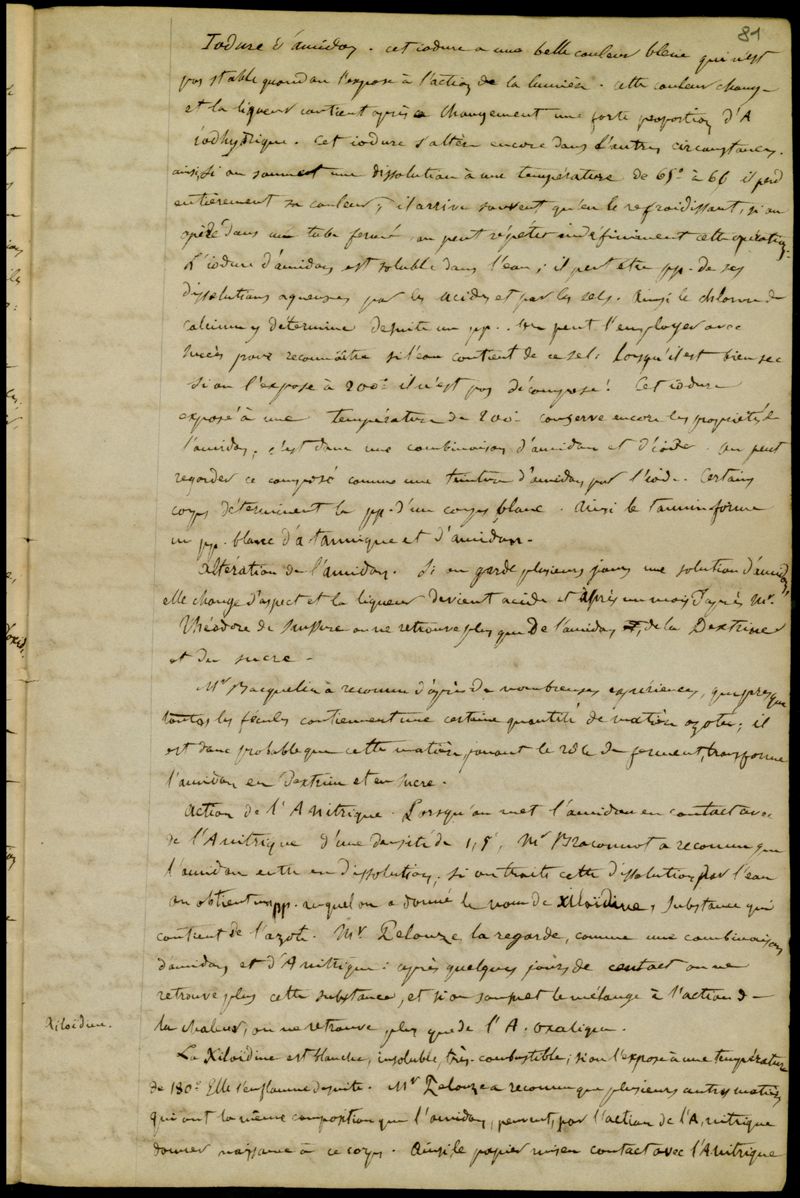 81
Iodure d'amidon. cet iodure a une belle couleur bleue qui n'est
pas stable quand on l'expose à l'action de la lumière. cette couleur change
et la liqueur contient après ce changement une forte proportion d'A
iodhydrique. Cet iodure s'altère encore dans d'autres circonstances.
ainsi, si on soumet une dissolution à une température de 65° à 66 il perd
entièrement sa couleur, il arrive souvent qu'en le refroidissant, si on
opère dans un tube fermé, on peut répéter indéfiniment cette opération.
L'iodure d'amidon est soluble dans l'eau; il peut être pp. de ses
dissolutions aqueuses par les acides et par les sels. Ainsi le chlorure de
calcium y détermine de suite un pp. On peut l'employer avec
succès pour reconnaître si l'eau contient de ce sel. Lorsqu'il est bien sec
si on l'expose à 200° il n'est pas décomposé. Cet iodure
exposé à une température de 200° conserve encore les propriétés de
l'amidon, c'est donc une combinaison d'amidon et d'iode. On peut
regarder ce composé comme une teinture d'amidon par l'iode. Certains
corps déterminent le pp. d'un corps blanc. Ainsi le tannin forme
un pp. blanc d'a tannique et d'amidon.
Altération de l'amidon. Si on garde plusieurs jours une solution d'amidon,
elle change d'aspect et la liqueur devient acide et après un mois d'après Mr.
Théodore de Saussure on ne retrouve plus que de l'amidon, de la Dextrine
et du sucre.
Mr Jacquelin a reconnu d'après de nombreuses expériences, que presque
toutes les fécules contiennent une certaine quantité de matière azotée; il
est donc probable que cette matière jouant le rôle de ferment, transforme
l'amidon en Dextrine et en sucre.
Action de l'A nitrique. Lorsqu'on met l'amidon en contact avec
de l'A nitrique d'une densité de 1,5, Mr Braconnot a reconnu que
l'amidon entre en dissolution; si on traite cette dissolution par l'eau
on obtient un pp. auquel on a donné le nom de xiloïdine, substance qui
contient de l'azote. Mr Pelouze la regarde, comme une combinaison
d'amidon et d'A nitrique: après quelques jours de contact on ne
retrouve plus cette substance, et si on soumet le mélange à l'action de
la chaleur, on ne retrouve plus que de l'A. oxalique.
Xiloïdine.
La Xiloïdine est blanche, insoluble, très-combustible; si on l'expose à une température
de 180° Elle s'enflamme de suite. Mr Pelouze a reconnu que plusieurs autres matières
qui ont la même composition que l'amidon, peuvent, par l'action de l'A, nitrique
donner naissance à ce corps. Ainsi le papier mis en contact avec l'A nitrique